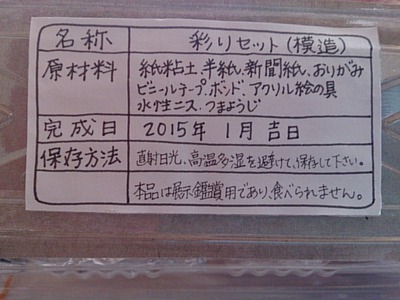 名称 彩りセット(模造)
原材料 紙粘土、半紙、新聞紙、おりがみ
ビニールテープ、ボンド、アクリル絵の具
水性ニス、つまようじ
完成日 2015年 1月 吉日
保存方法 直射日光、高温多湿を避けて、保存して下さい。
本品は展示・鑑賞用であり、食べられません。